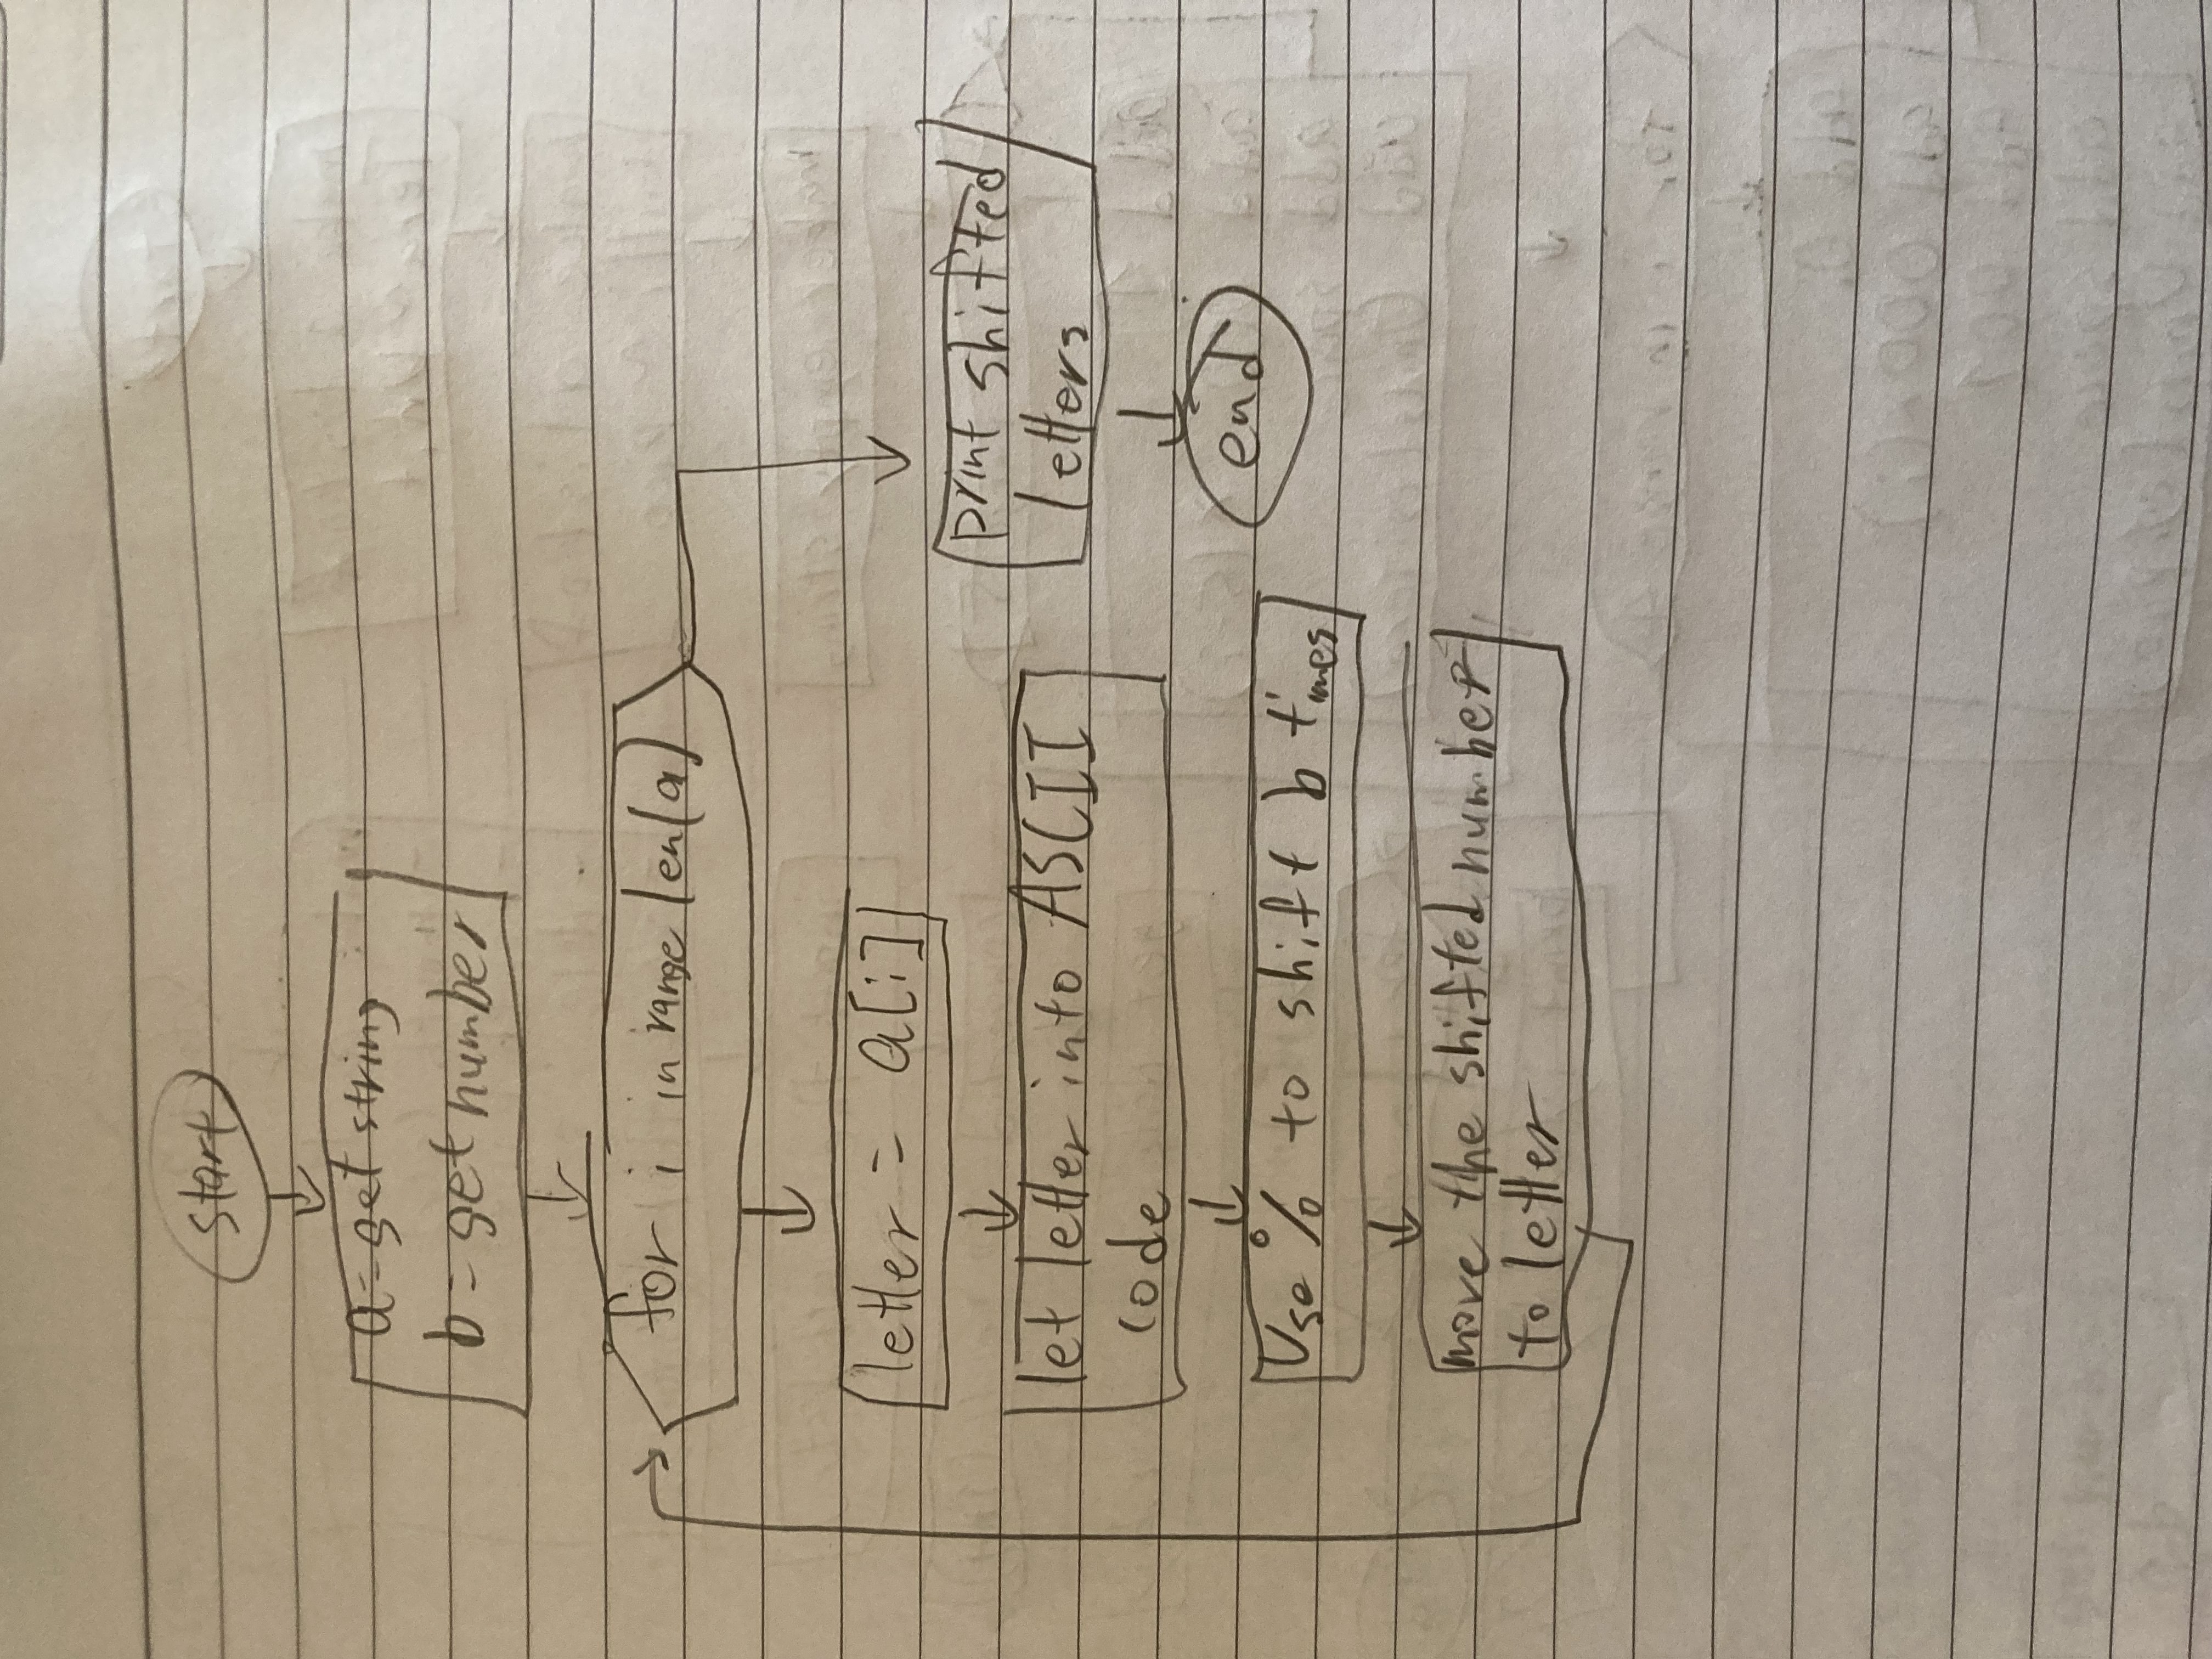 start
a = get string
b = get number
for i in range len(a)
letter = a[i]
let letter into ASCII
code
Use % to shift b times
move the shifted number
to letter
print shifted
letters
end